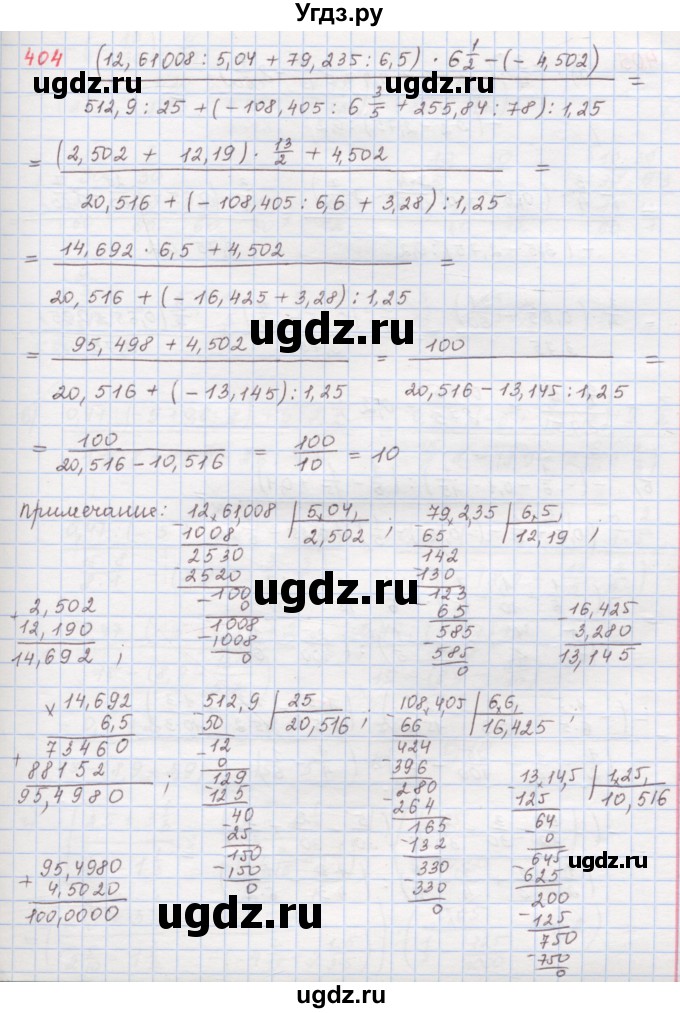 Угдз.ру
404 (12,61008 : 5,04 + 79,235 : 6,5) · 6 1/2 - (- 4,502) / 512,9 : 25 + (- 108,405 : 6 3/5 + 255,84 : 78) : 1,25 =
= (2,502 + 12,19) · 13/2 + 4,502 / 20,516 + (- 108,405 : 6,6 + 3,28) : 1,25 =
= 14,692 · 6,5 + 4,502 / 20,516 + (- 16,425 + 3,28) : 1,25 =
= 95,498 + 4,502 / 20,516 + (- 13,145) : 1,25 = 100 / 20,516 - 13,145 : 1,25 =
= 100 / 20,516 - 10,516 = 100/10 = 10
примечание: 12,61,008 | 5,04, ; 79,2,35 | 6,5, ;
1008 2,502 65 12,19
2530 142
2520 130
100 123
0 65
1008 585
1008 585
0 0
+ 2,502
12,190
14,692 ;
- 16,425
3,280
13,145
× 14,692
6,5
73460
+ 88152
95,4980 ;
512,9 | 25
50 20,516 ;
12
0
129
125
40
25
150
150
0
108,4,05 | 6,6,
66 16,425 ;
424
396
280
264
165
132
330
330
0
13,14,5 | 1,25,
125 10,516
64
0
645
625
200
125
750
750
0
+ 95,4980
4,5020
100,0000
ugdz.ru
ugdz.ru
ugdz.ru
ugdz.ru
ugdz.ru
ugdz.ru
ugdz.ru
ugdz.ru
ugdz.ru